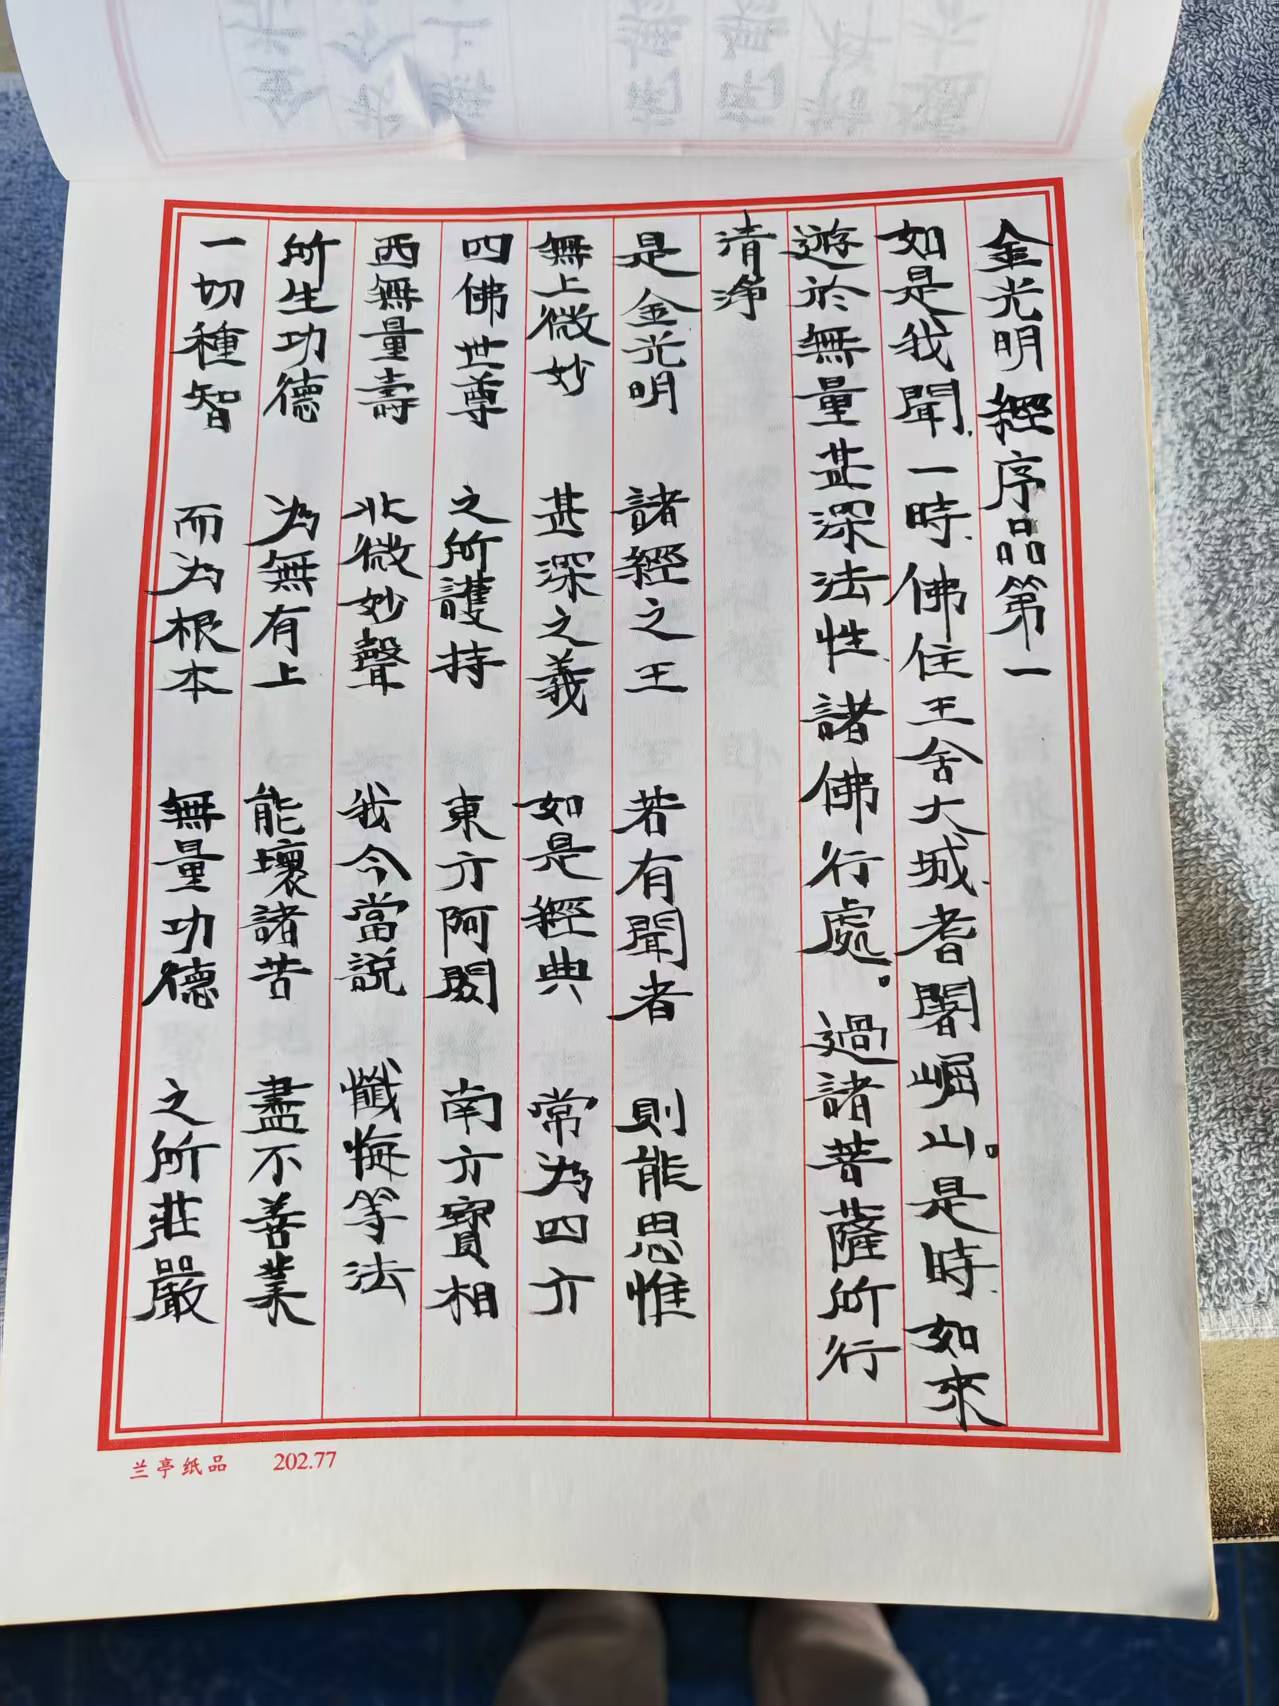 金光明經序品第一
如是我聞、一時、佛住王舍大城、耆闍崛山。是時、如來
遊於無量甚深法性、諸佛行處。過諸菩薩所行
清淨
是金光明 諸經之王 若有聞者 則能思惟
無上微妙 甚深之義 如是經典 常為四方
四佛世尊 之所護持 東方阿閦 南方寶相
西無量壽 北微妙聲 我今當説 懺悔等法
所生功德 為無有上 能壞諸苦 盡不善業
一切種智 而為根本 無量功德 之所莊嚴
兰亭纸品 202.77